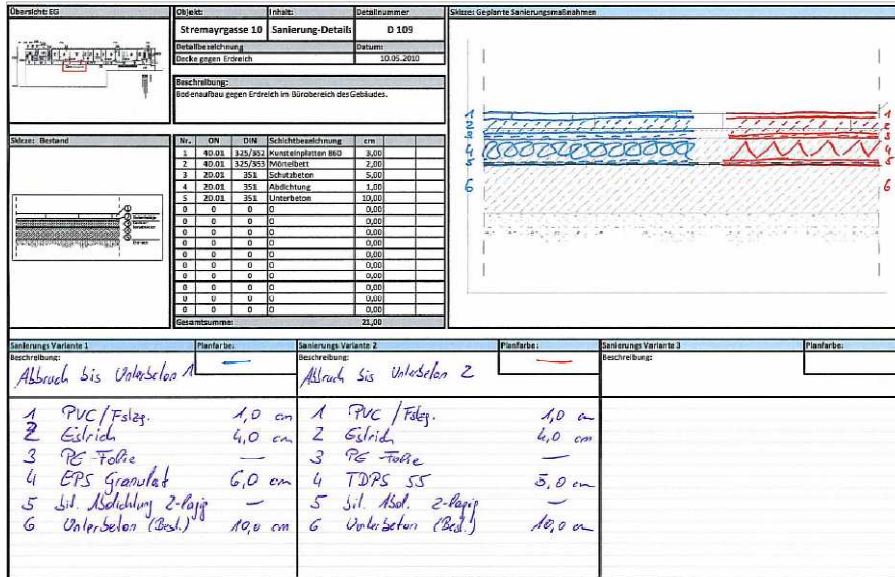 Übersicht: EG
Objekt:
Inhalt:
Detailnummer
Stremayrgasse 10
Sanierung-Details
D 109
Detailbezeichnung
Datum:
Decke gegen Erdreich
10.05.2010
Beschreibung:
Bodenaufbau gegen Erdreich im Bürobereich des Gebäudes.
Skizze: Geplante Sanierungsmaßnahmen
1
2
3
4
5
6
1
2
3
4
5
6
Skizze: Bestand
Nr. ON DIN Schichtbezeichnung cm
1 40.01 325/352 Kunsteinplatten B60 3,00
2 40.01 325/353 Mörtelbett 2,00
3 20.01 351 Schutzbeton 5,00
4 20.01 351 Abdichtung 1,00
5 20.01 351 Unterbeton 10,00
0 0 0 0 0,00
0 0 0 0 0,00
0 0 0 0 0,00
0 0 0 0 0,00
0 0 0 0 0,00
0 0 0 0 0,00
0 0 0 0 0,00
0 0 0 0 0,00
0 0 0 0 0,00
Gesamtsumme: 21,00
Sanierungs Variante 1
Planfarbe:
Beschreibung:
Abbruch bis Unterbeton 1
1 PVC/Fslzg. 1,0 cm
2 Estrich 4,0 cm
3 PE-Folie —
4 EPS Granulat 6,0 cm
5 bit. Abdichtung 2-lagig —
6 Unterbeton (Best.) 10,0 cm
Sanierungs Variante 2
Planfarbe:
Beschreibung:
Abbruch bis Unterbeton 2
1 PVC/Fslzg. 1,0 cm
2 Estrich 4,0 cm
3 PE-Folie —
4 TDPS 55 5,0 cm
5 bit. Abd. 2-lagig —
6 Unterbeton (Best.) 10,0 cm
Sanierungs Variante 3
Planfarbe:
Beschreibung: